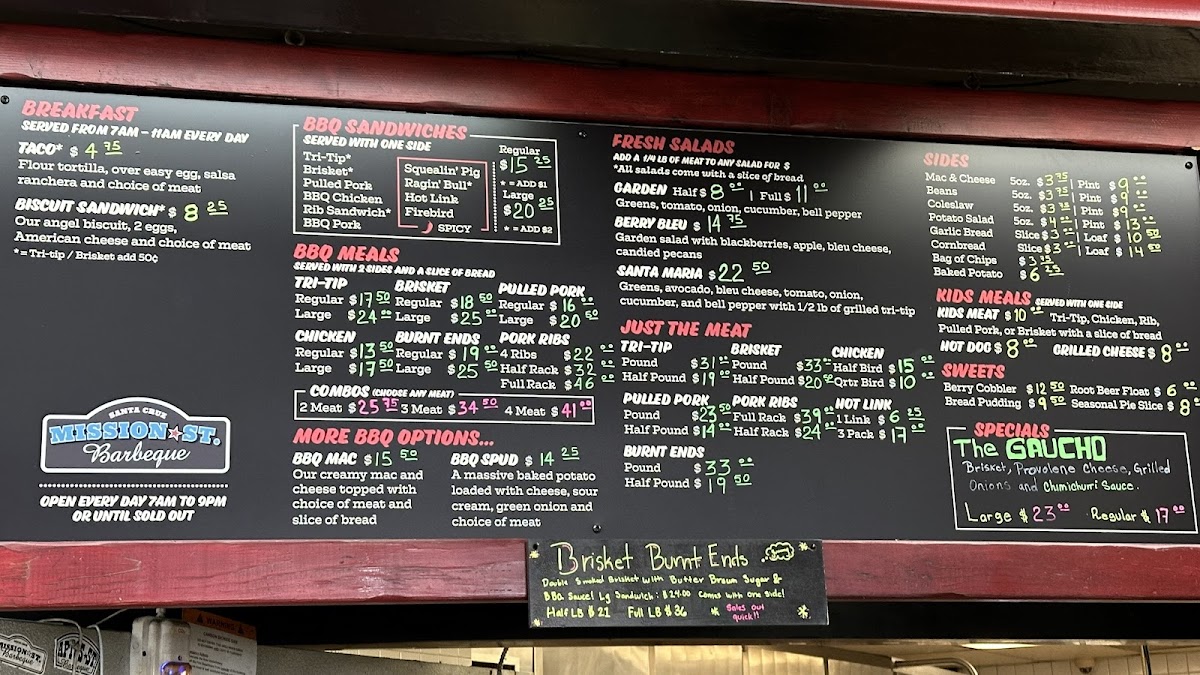 BREAKFAST
SERVED FROM 7AM – 11AM EVERY DAY
TACO* $ 4 75
Flour tortilla, over easy egg, salsa
ranchera and choice of meat
BISCUIT SANDWICH* $ 8 25
Our angel biscuit, 2 eggs,
American cheese and choice of meat
*= Tri-tip / Brisket add 50¢
SANTA CRUZ
MISSION ST.
Barbeque
OPEN EVERY DAY 7AM TO 9PM
OR UNTIL SOLD OUT
BBQ SANDWICHES
SERVED WITH ONE SIDE
Tri-Tip*
Brisket*
Pulled Pork
BBQ Chicken
Rib Sandwich*
BBQ Pork
Squealin' Pig
Ragin' Bull*
Hot Link
Firebird
SPICY
Regular
$15 25
* = ADD $1
Large
$20 25
* = ADD $2
BBQ MEALS
SERVED WITH 2 SIDES AND A SLICE OF BREAD
TRI-TIP
Regular $17 50
Large $24 00
BRISKET
Regular $18 50
Large $25 00
PULLED PORK
Regular $16 00
Large $20 50
CHICKEN
Regular $13 50
Large $17 50
BURNT ENDS
Regular $19 00
Large $25 50
PORK RIBS
4 Ribs $22 00
Half Rack $32 00
Full Rack $46 00
COMBOS (CHOOSE ANY MEAT)
2 Meat $25 75 3 Meat $34 50 4 Meat $41 00
MORE BBQ OPTIONS...
BBQ MAC $15 50
Our creamy mac and
cheese topped with
choice of meat and
slice of bread
BBQ SPUD $ 14 25
A massive baked potato
loaded with cheese, sour
cream, green onion and
choice of meat
FRESH SALADS
ADD A 1/4 LB OF MEAT TO ANY SALAD FOR $
*All salads come with a slice of bread
GARDEN Half $ 8 00 | Full $ 11 00
Greens, tomato, onion, cucumber, bell pepper
BERRY BLEU $ 14 75
Garden salad with blackberries, apple, bleu cheese,
candied pecans
SANTA MARIA $22 50
Greens, avocado, bleu cheese, tomato, onion,
cucumber, and bell pepper with 1/2 lb of grilled tri-tip
JUST THE MEAT
TRI-TIP
Pound $31 00
Half Pound $19 00
BRISKET
Pound $33 00
Half Pound $20 00
CHICKEN
Half Bird $15 00
Qrtr Bird $10 00
PULLED PORK
Pound $23 50
Half Pound $14 00
PORK RIBS
Full Rack $39 00
Half Rack $24 00
HOT LINK
1 Link $ 6 25
3 Pack $ 17 00
BURNT ENDS
Pound $ 33 00
Half Pound $ 19 50
SIDES
Mac & Cheese 5oz. $3 75 | Pint $9 00
Beans 5oz. $3 75 | Pint $9 00
Coleslaw 5oz. $3 75 | Pint $9 00
Potato Salad 5oz. $4 | Pint $13 00
Garlic Bread Slice $3 | Loaf $10 50
Cornbread Slice $3 | Loaf $14 50
Bag of Chips $3 75
Baked Potato $6 25
KIDS MEALS SERVED WITH ONE SIDE
KIDS MEAT $10 00 Tri-Tip, Chicken, Rib,
Pulled Pork, or Brisket with a slice of bread
HOT DOG $8 00 GRILLED CHEESE $8 00
SWEETS
Berry Cobbler $12 50 Root Beer Float $ 6 00
Bread Pudding $9 50 Seasonal Pie Slice $8
SPECIALS
The GAUCHO
Brisket, Provolone Cheese, Grilled
Onions and Chimichurri Sauce.
Large $ 23 00 Regular $ 17 00
Brisket Burnt Ends
Double Smoked Brisket with Butter Brown Sugar &
BBQ Sauce! Lg Sandwich: $24.00 Comes with one side!
Half LB $21 Full LB $36 * Sales out
quick!! *
MISSION ST.
Barbeque
WARNING